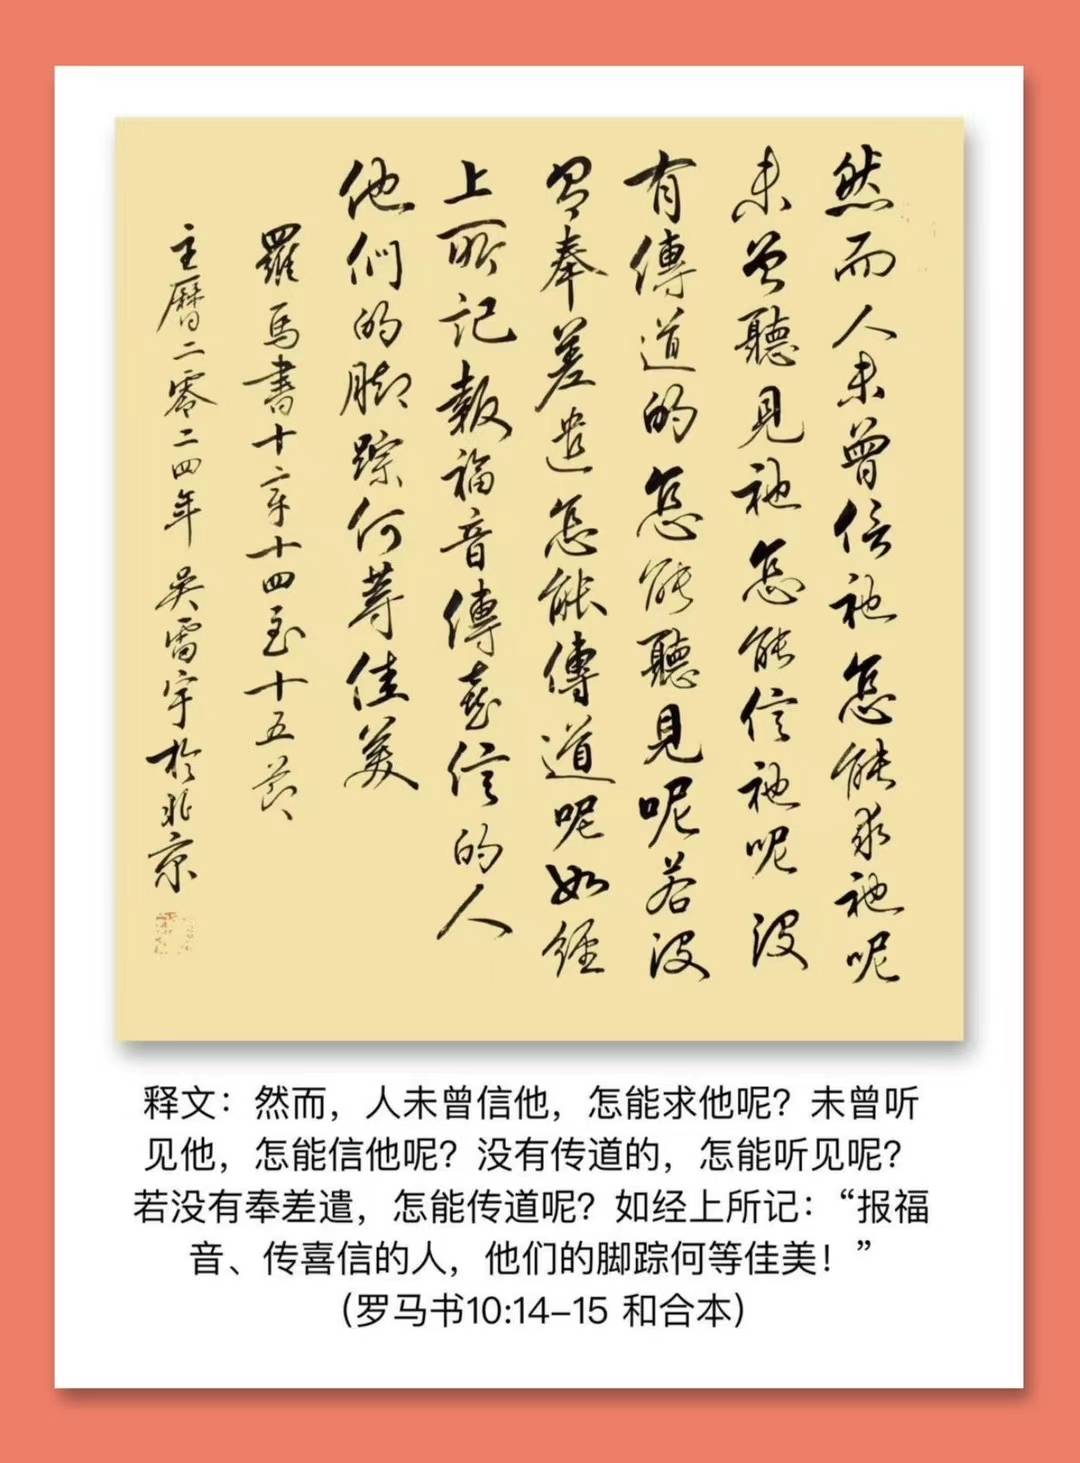 然而人未曾信祂怎能求祂呢
未曾聽見祂怎能信祂呢没
有傳道的怎能聽見呢若没
有奉差遣怎能傳道呢如經
上所記報福音傳喜信的人
他們的脚踪何等佳美
羅馬書十章十四至十五节
主曆二零二四年吴雷宇於北京
释文：然而，人未曾信他，怎能求他呢？未曾听
见他，怎能信他呢？没有传道的，怎能听见呢？
若没有奉差遣，怎能传道呢？如经上所记：“报福
音、传喜信的人，他们的脚踪何等佳美！”
（罗马书10:14–15 和合本）